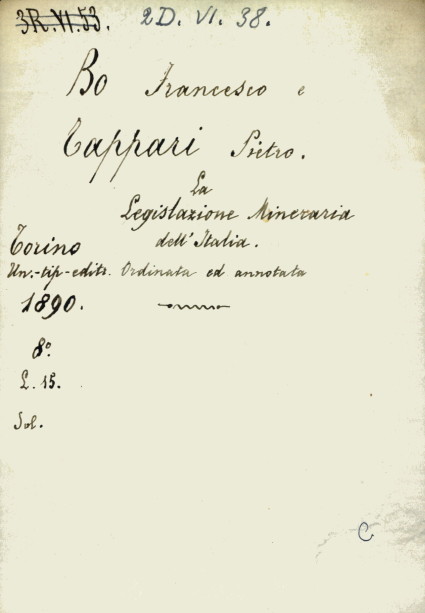 3R.VI.53. 2D. VI. 38.
Bo Francesco e
Tappari Pietro.
La
Legislazione Mineraria
dell'Italia.
Torino
Un.-tip-editr. Ordinata ed annotata
1890.
8º.
L. 15.
Sol.
C